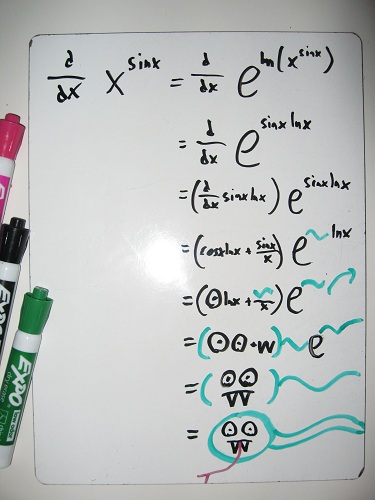 d/dx x^sinx = d/dx e^ln(x^sinx)
= d/dx e^sinx lnx
= (d/dx sinx lnx) e^sinx lnx
= (cosx lnx + sinx/x) e^~ lnx
= (ʘ lnx + ~/x) e^~
= (ʘʘ+w)~e~
=
=
EXPO
EXPO